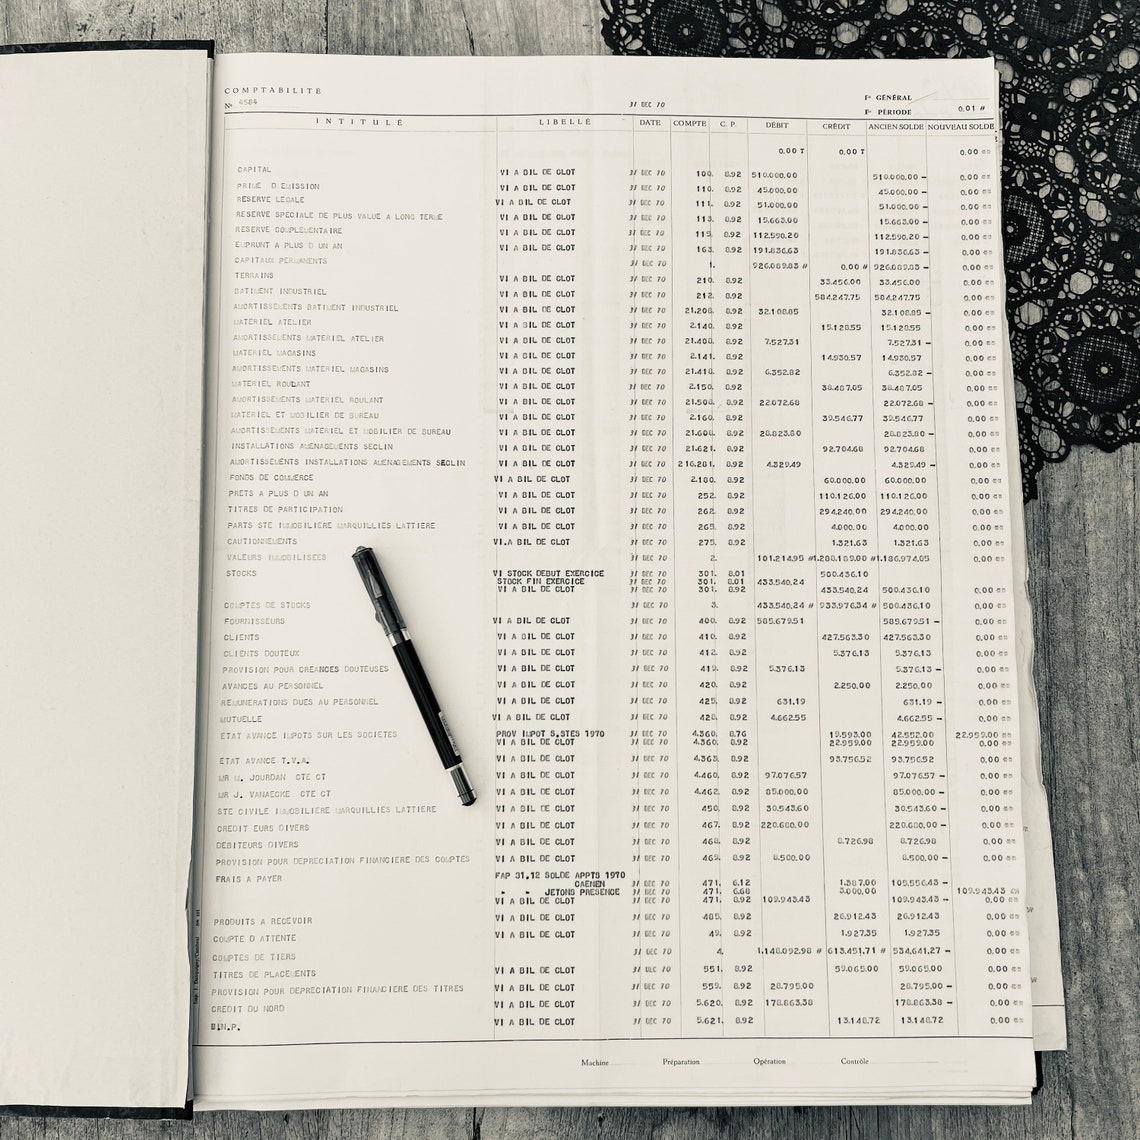 COMPTABILITÉ
N° 4584 31 DEC 70 Fo GÉNÉRAL
Fo PÉRIODE 0.01 #
INTITULÉ LIBELLÉ DATE COMPTE C. P. DÉBIT CRÉDIT ANCIEN SOLDE NOUVEAU SOLDE
0.00 T 0.00 T 0.00
CAPITAL VI A BIL DE CLOT 31 DEC 70 100. 8.92 510.000.00 510.000.00 – 0.00
PRIME D EMISSION VI A BIL DE CLOT 31 DEC 70 110. 8.92 45.000.00 45.000.00 – 0.00
RESERVE LEGALE VI A BIL DE CLOT 31 DEC 70 111. 8.92 51.000.00 51.000.00 – 0.00
RESERVE SPECIALE DE PLUS VALUE A LONG TERME VI A BIL DE CLOT 31 DEC 70 113. 8.92 15.663.00 15.663.00 – 0.00
RESERVE COMPLEMENTAIRE VI A BIL DE CLOT 31 DEC 70 115. 8.92 112.590.20 112.590.20 – 0.00
EMPRUNT A PLUS D UN AN VI A BIL DE CLOT 31 DEC 70 163. 8.92 191.836.63 191.836.63 – 0.00
CAPITAUX PERMANENTS 31 DEC 70 1. 926.089.83 # 0.00 # 926.089.83 – 0.00
TERRAINS VI A BIL DE CLOT 31 DEC 70 210. 8.92 33.456.00 33.456.00 0.00
BATIMENT INDUSTRIEL VI A BIL DE CLOT 31 DEC 70 212. 8.92 584.247.75 584.247.75 0.00
AMORTISSEMENTS BATIMENT INDUSTRIEL VI A BIL DE CLOT 31 DEC 70 21.208. 8.92 32.108.85 32.108.85 – 0.00
MATERIEL ATELIER VI A BIL DE CLOT 31 DEC 70 2.140. 8.92 15.128.55 15.128.55 0.00
AMORTISSEMENTS MATERIEL ATELIER VI A BIL DE CLOT 31 DEC 70 21.408. 8.92 7.527.31 7.527.31 – 0.00
MATERIEL MAGASINS VI A BIL DE CLOT 31 DEC 70 2.141. 8.92 14.930.57 14.930.57 0.00
AMORTISSEMENTS MATERIEL MAGASINS VI A BIL DE CLOT 31 DEC 70 21.418. 8.92 6.352.82 6.352.82 – 0.00
MATERIEL ROULANT VI A BIL DE CLOT 31 DEC 70 2.150. 8.92 38.487.05 38.487.05 0.00
AMORTISSEMENTS MATERIEL ROULANT VI A BIL DE CLOT 31 DEC 70 21.508. 8.92 22.072.68 22.072.68 – 0.00
MATERIEL ET MOBILIER DE BUREAU VI A BIL DE CLOT 31 DEC 70 2.160. 8.92 39.546.77 39.546.77 0.00
AMORTISSEMENTS MATERIEL ET MOBILIER DE BUREAU VI A BIL DE CLOT 31 DEC 70 21.608. 8.92 28.823.80 28.823.80 – 0.00
INSTALLATIONS AMENAGEMENTS SECLIN VI A BIL DE CLOT 31 DEC 70 21.621. 8.92 92.704.68 92.704.68 0.00
AMORTISSEMENTS INSTALLATIONS AMENAGEMENTS SECLIN VI A BIL DE CLOT 31 DEC 70 216.281. 8.92 4.329.49 4.329.49 – 0.00
FONDS DE COMMERCE VI A BIL DE CLOT 31 DEC 70 2.180. 8.92 60.000.00 60.000.00 0.00
PRETS A PLUS D UN AN VI A BIL DE CLOT 31 DEC 70 252. 8.92 110.126.00 110.126.00 0.00
TITRES DE PARTICIPATION VI A BIL DE CLOT 31 DEC 70 262. 8.92 294.240.00 294.240.00 0.00
PARTS STE IMMOBILIERE MARQUILLIES LATTIERE VI A BIL DE CLOT 31 DEC 70 265. 8.92 4.000.00 4.000.00 0.00
CAUTIONNEMENTS VI.A BIL DE CLOT 31 DEC 70 275. 8.92 1.321.63 1.321.63 0.00
VALEURS IMMOBILISEES 31 DEC 70 2. 101.214.95 # 1.288.189.00 # 1.186.974.05 0.00
STOCKS VI STOCK DEBUT EXERCICE 31 DEC 70 301. 8.01 500.436.10
STOCK FIN EXERCICE 31 DEC 70 301. 8.01 433.540.24
VI A BIL DE CLOT 31 DEC 70 301. 8.92 433.540.24 500.436.10 0.00
COMPTES DE STOCKS 31 DEC 70 3. 433.540.24 # 933.976.34 # 500.436.10 0.00
FOURNISSEURS VI A BIL DE CLOT 31 DEC 70 400. 8.92 585.679.51 585.679.51 – 0.00
CLIENTS VI A BIL DE CLOT 31 DEC 70 410. 8.92 427.563.30 427.563.30 0.00
CLIENTS DOUTEUX VI A BIL DE CLOT 31 DEC 70 412. 8.92 5.376.13 5.376.13 0.00
PROVISION POUR CREANCES DOUTEUSES VI A BIL DE CLOT 31 DEC 70 419. 8.92 5.376.13 5.376.13 – 0.00
AVANCES AU PERSONNEL VI A BIL DE CLOT 31 DEC 70 420. 8.92 2.250.00 2.250.00 0.00
REMUNERATIONS DUES AU PERSONNEL VI A BIL DE CLOT 31 DEC 70 425. 8.92 631.19 631.19 – 0.00
MUTUELLE VI A BIL DE CLOT 31 DEC 70 428. 8.92 4.662.55 4.662.55 – 0.00
ETAT AVANCE IMPOTS SUR LES SOCIETES PROV IMPOT S.STES 1970 31 DEC 70 4.360. 8.76 19.593.00 42.552.00 22.959.00
VI A BIL DE CLOT 31 DEC 70 4.360. 8.92 22.959.00 22.959.00 0.00
ETAT AVANCE T.V.A. VI A BIL DE CLOT 31 DEC 70 4.365. 8.92 93.756.52 93.756.52 0.00
MR M. JOURDAN CTE CT VI A BIL DE CLOT 31 DEC 70 4.460. 8.92 97.076.57 97.076.57 – 0.00
MR J. VANAECKE CTE CT VI A BIL DE CLOT 31 DEC 70 4.462. 8.92 85.000.00 85.000.00 – 0.00
STE CIVILE IMMOBILIERE MARQUILLIES LATTIERE VI A BIL DE CLOT 31 DEC 70 450. 8.92 30.543.60 30.543.60 – 0.00
CREDIT EURS DIVERS VI A BIL DE CLOT 31 DEC 70 467. 8.92 220.680.00 220.680.00 – 0.00
DEBITEURS DIVERS VI A BIL DE CLOT 31 DEC 70 468. 8.92 8.726.98 8.726.98 0.00
PROVISION POUR DEPRECIATION FINANCIERE DES COMPTES VI A BIL DE CLOT 31 DEC 70 469. 8.92 8.500.00 8.500.00 – 0.00
FRAIS A PAYER FAP 31.12 SOLDE APPTS 1970
CAENEN 31 DEC 70 471. 6.12 1.387.00 105.556.43 –
" " JETONS PRESENCE 31 DEC 70 471. 6.68 3.000.00 109.943.43
VI A BIL DE CLOT 31 DEC 70 471. 8.92 109.943.43 109.943.43 – 0.00
PRODUITS A RECEVOIR VI A BIL DE CLOT 31 DEC 70 485. 8.92 26.912.43 26.912.43 0.00
COMPTE D ATTENTE VI A BIL DE CLOT 31 DEC 70 49. 8.92 1.927.35 1.927.35 0.00
COMPTES DE TIERS 31 DEC 70 4. 1.148.092.98 # 613.451.71 # 534.641.27 – 0.00
TITRES DE PLACEMENTS VI A BIL DE CLOT 31 DEC 70 551. 8.92 59.065.00 59.065.00 0.00
PROVISION POUR DEPRECIATION FINANCIERE DES TITRES VI A BIL DE CLOT 31 DEC 70 559. 8.92 28.795.00 28.795.00 – 0.00
CREDIT DU NORD VI A BIL DE CLOT 31 DEC 70 5.620. 8.92 178.863.38 178.863.38 – 0.00
B.N.P. VI A BIL DE CLOT 31 DEC 70 5.621. 8.92 13.148.72 13.148.72 0.00
Machine Préparation Opération Contrôle